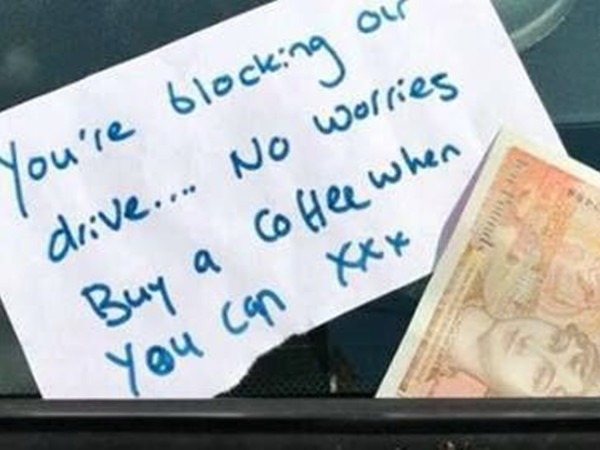 You're blocking our
drive.... No worries
Buy a coffee when
you can xxx